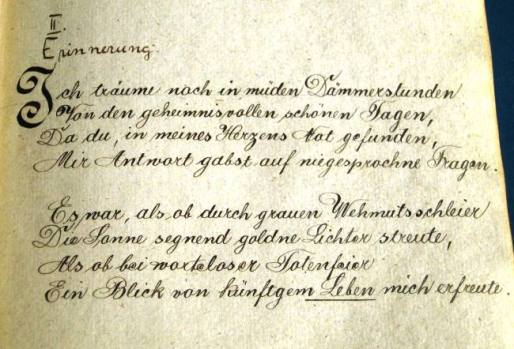 II.
Erinnerung.
Ich träume noch in müden Dämmerstunden
Von den geheimnisvollen schönen Tagen,
Da du, in meines Herzens Not gefunden,
Mir Antwort gabst auf niegesprochne Fragen.
Es war, als ob durch grauen Wehmutsschleier
Die Sonne segnend goldne Lichter streute,
Als ob bei wortloser Totenfeier
Ein Blick von künftgem Leben mich erfreute.